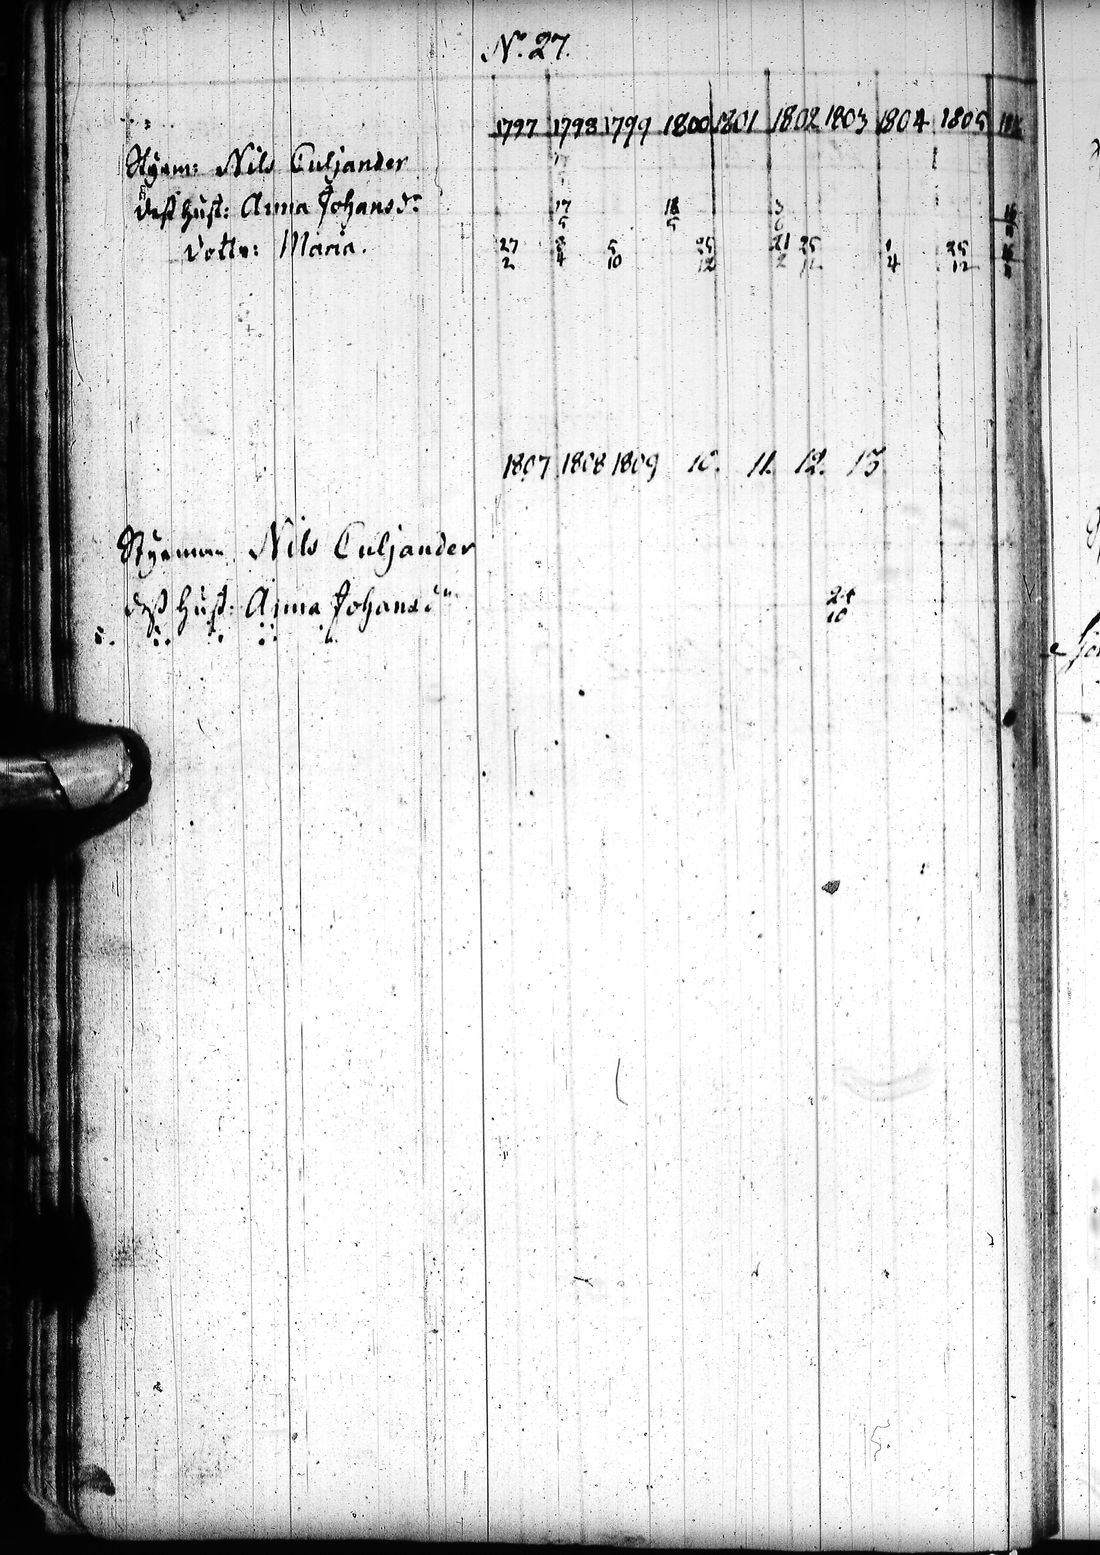 No. 27.
1797 1798 1799 1800 1801 1802 1803 1804 1805
Styrm: Nils Culjander
dess hust: Anna Johansdr 17/5 18/5
Dotter: Maria. 27/2 8/4 5/10 25/12 21/2 25/11 1/4 25/12
1807 1808 1809 10. 11. 12. 13
Styrman Nils Culjander
dess hust: Anna Johansdr 24/10